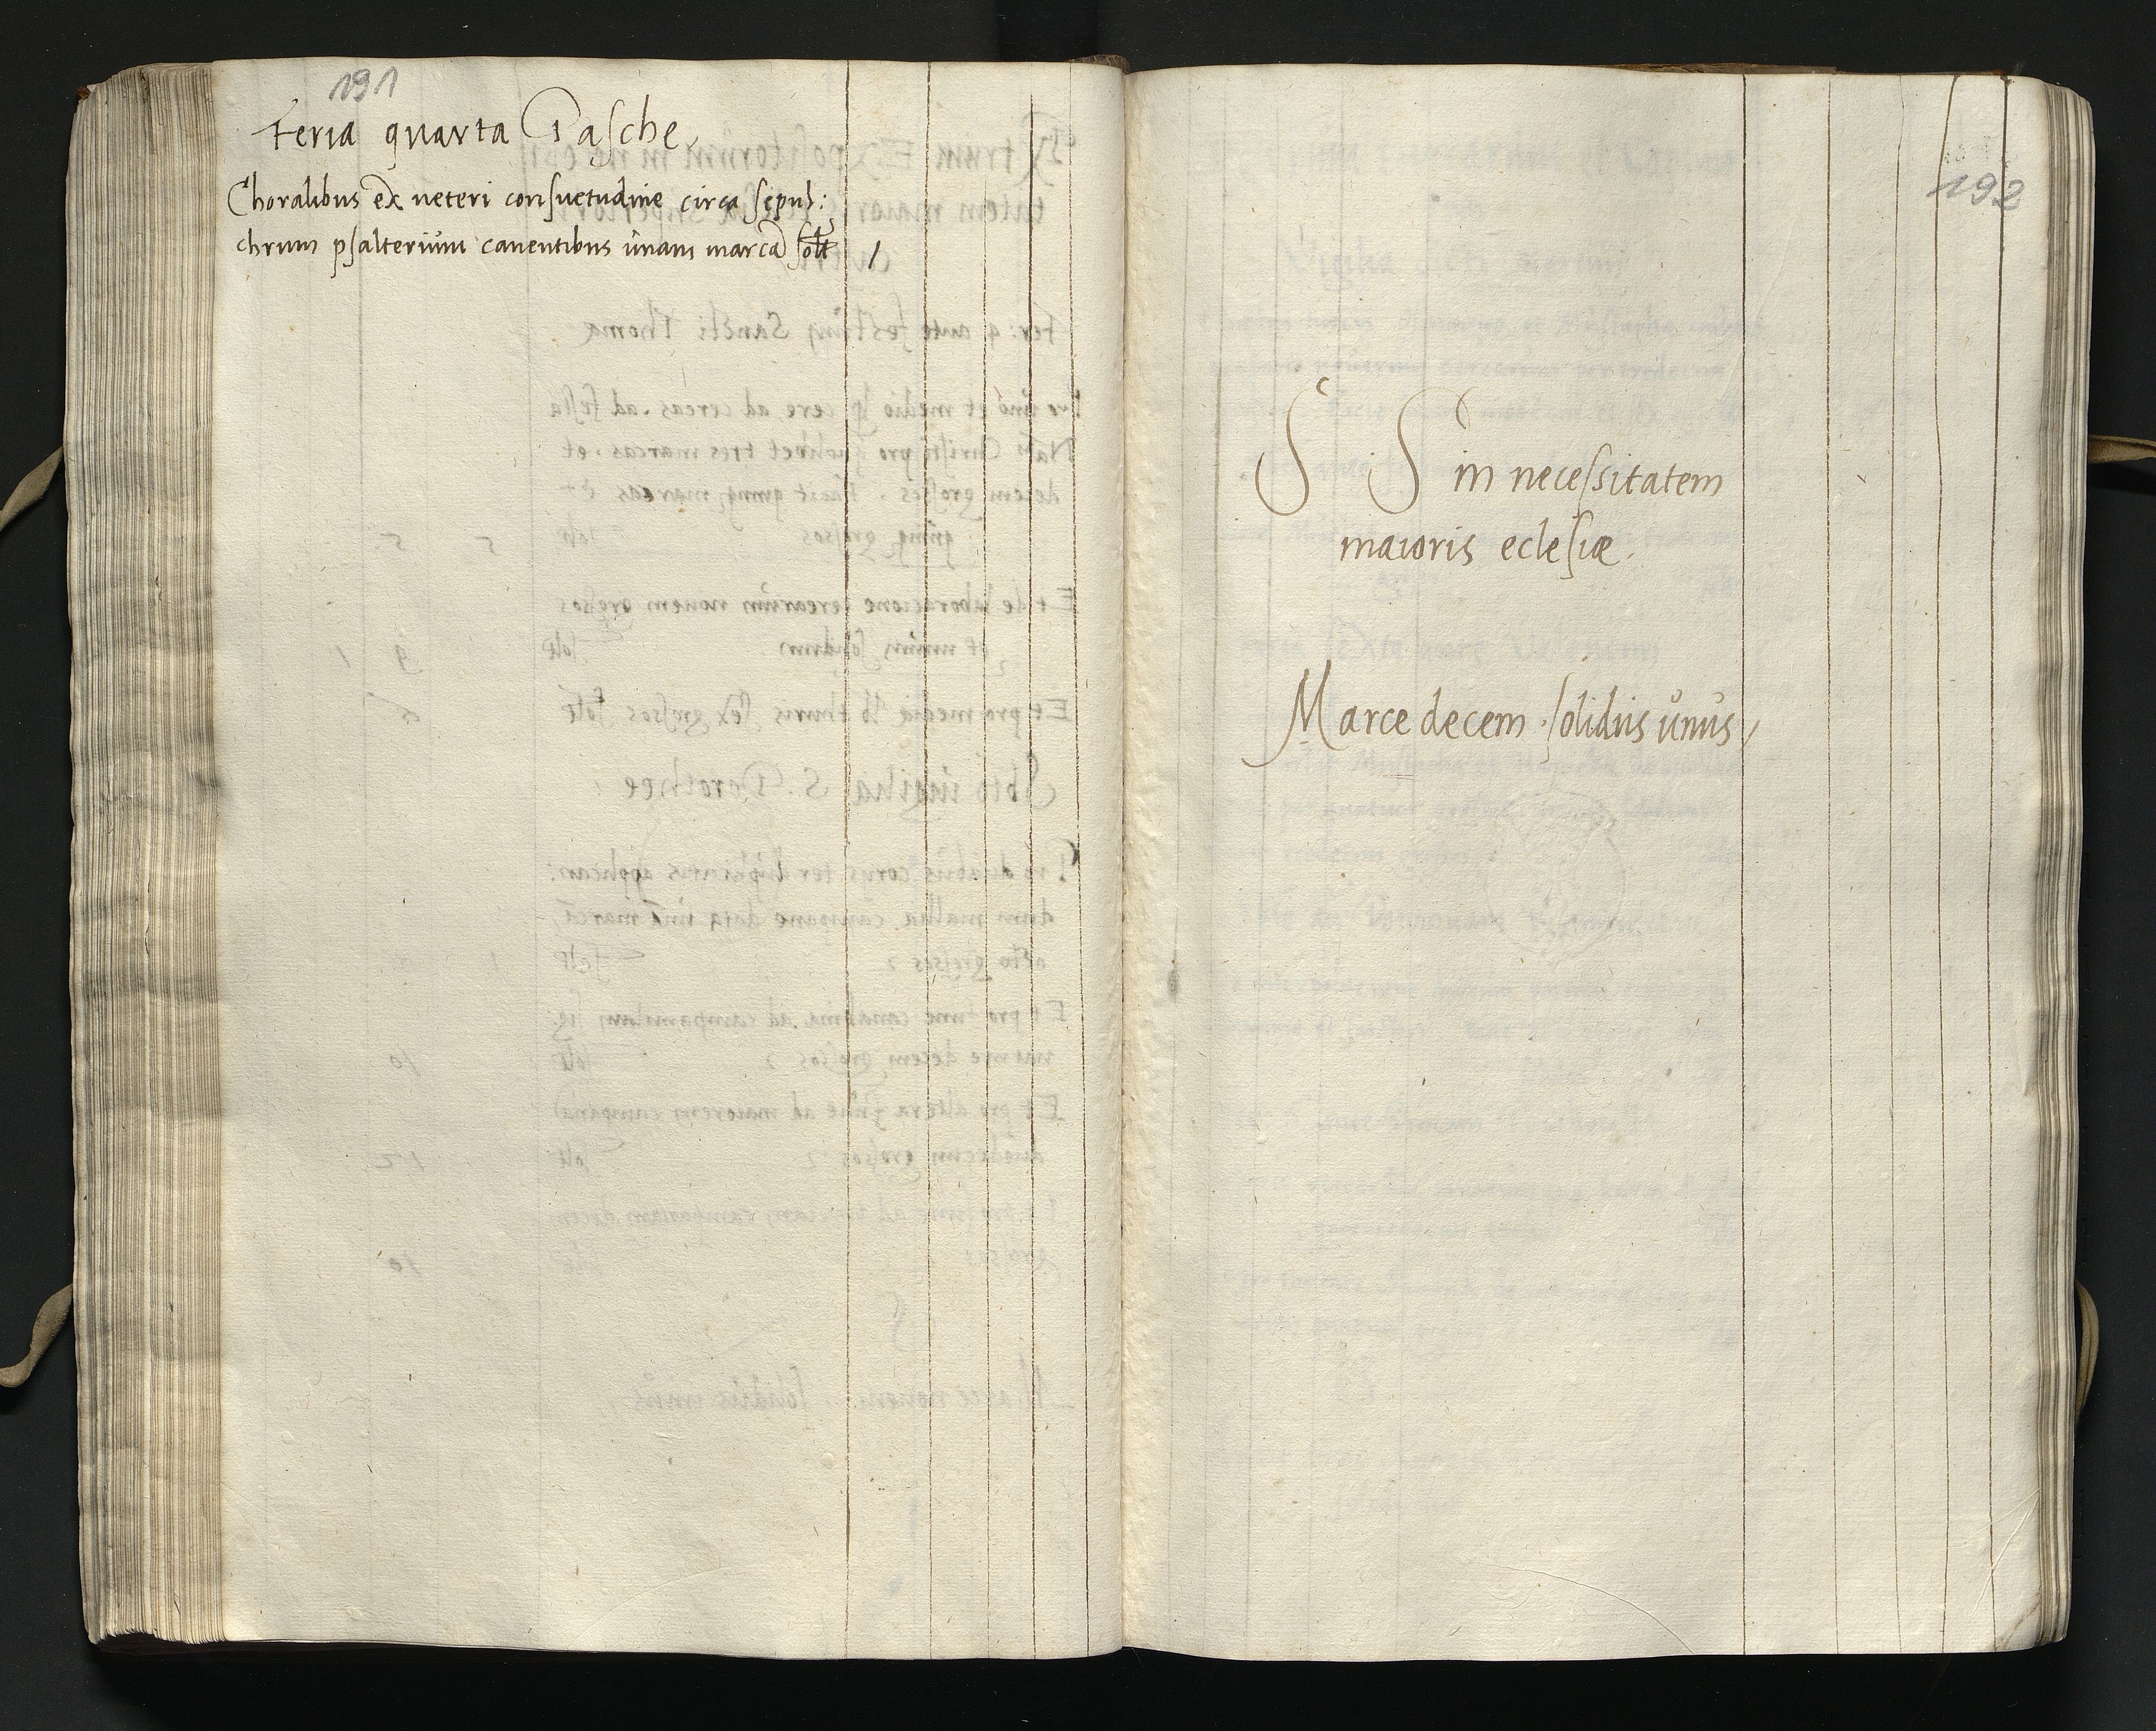 191
Feria quarta Pasche
Choralibus ex ueteri consuetudine circa sepul:
chrum psalterium canentibus unam marcã solt 1
192
S S in necessitatem
maioris eclesiæ.
Marce decem solidus unus